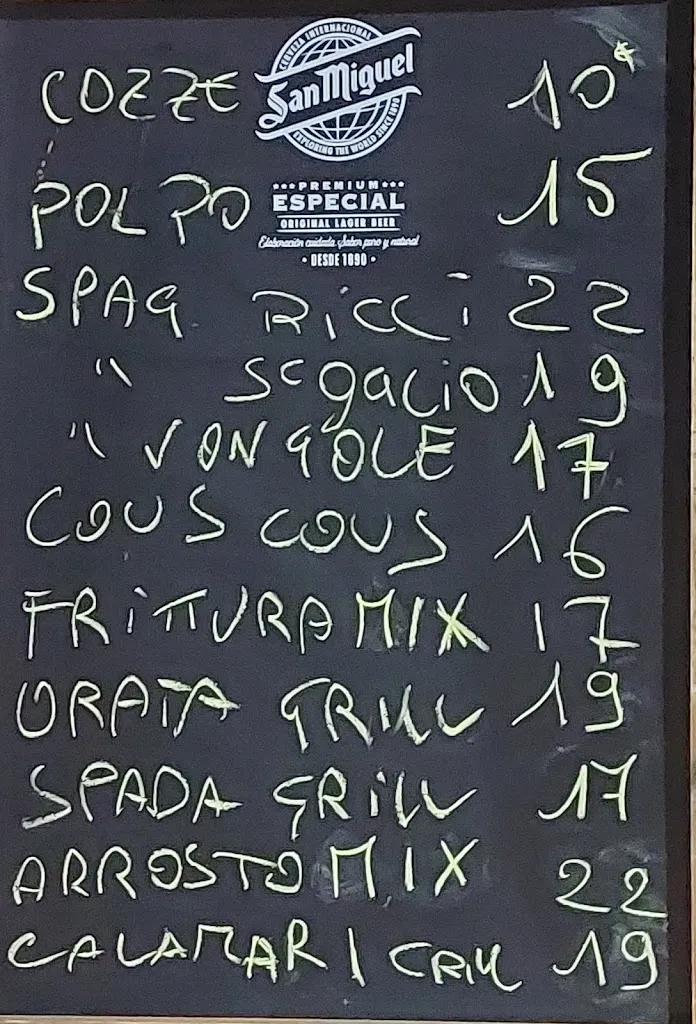 CERVEZA INTERNACIONAL
San Miguel
EXPLORING THE WORLD SINCE 1890
COZZE 10€
PREMIUM
ESPECIAL
ORIGINAL LAGER BEER
Elaboración cuidada, Sabor puro y natural
· DESDE 1890 ·
POLPO 15
SPAG RiCCi 22
" ScgaCiO 19
" VONGOLE 17
COUS COUS 16
FRiTTURA MIX 17
ORATA GRiLL 19
SPADA GRiLL 17
ARROSTO MIX 22
CALAMARI GRiLL 19